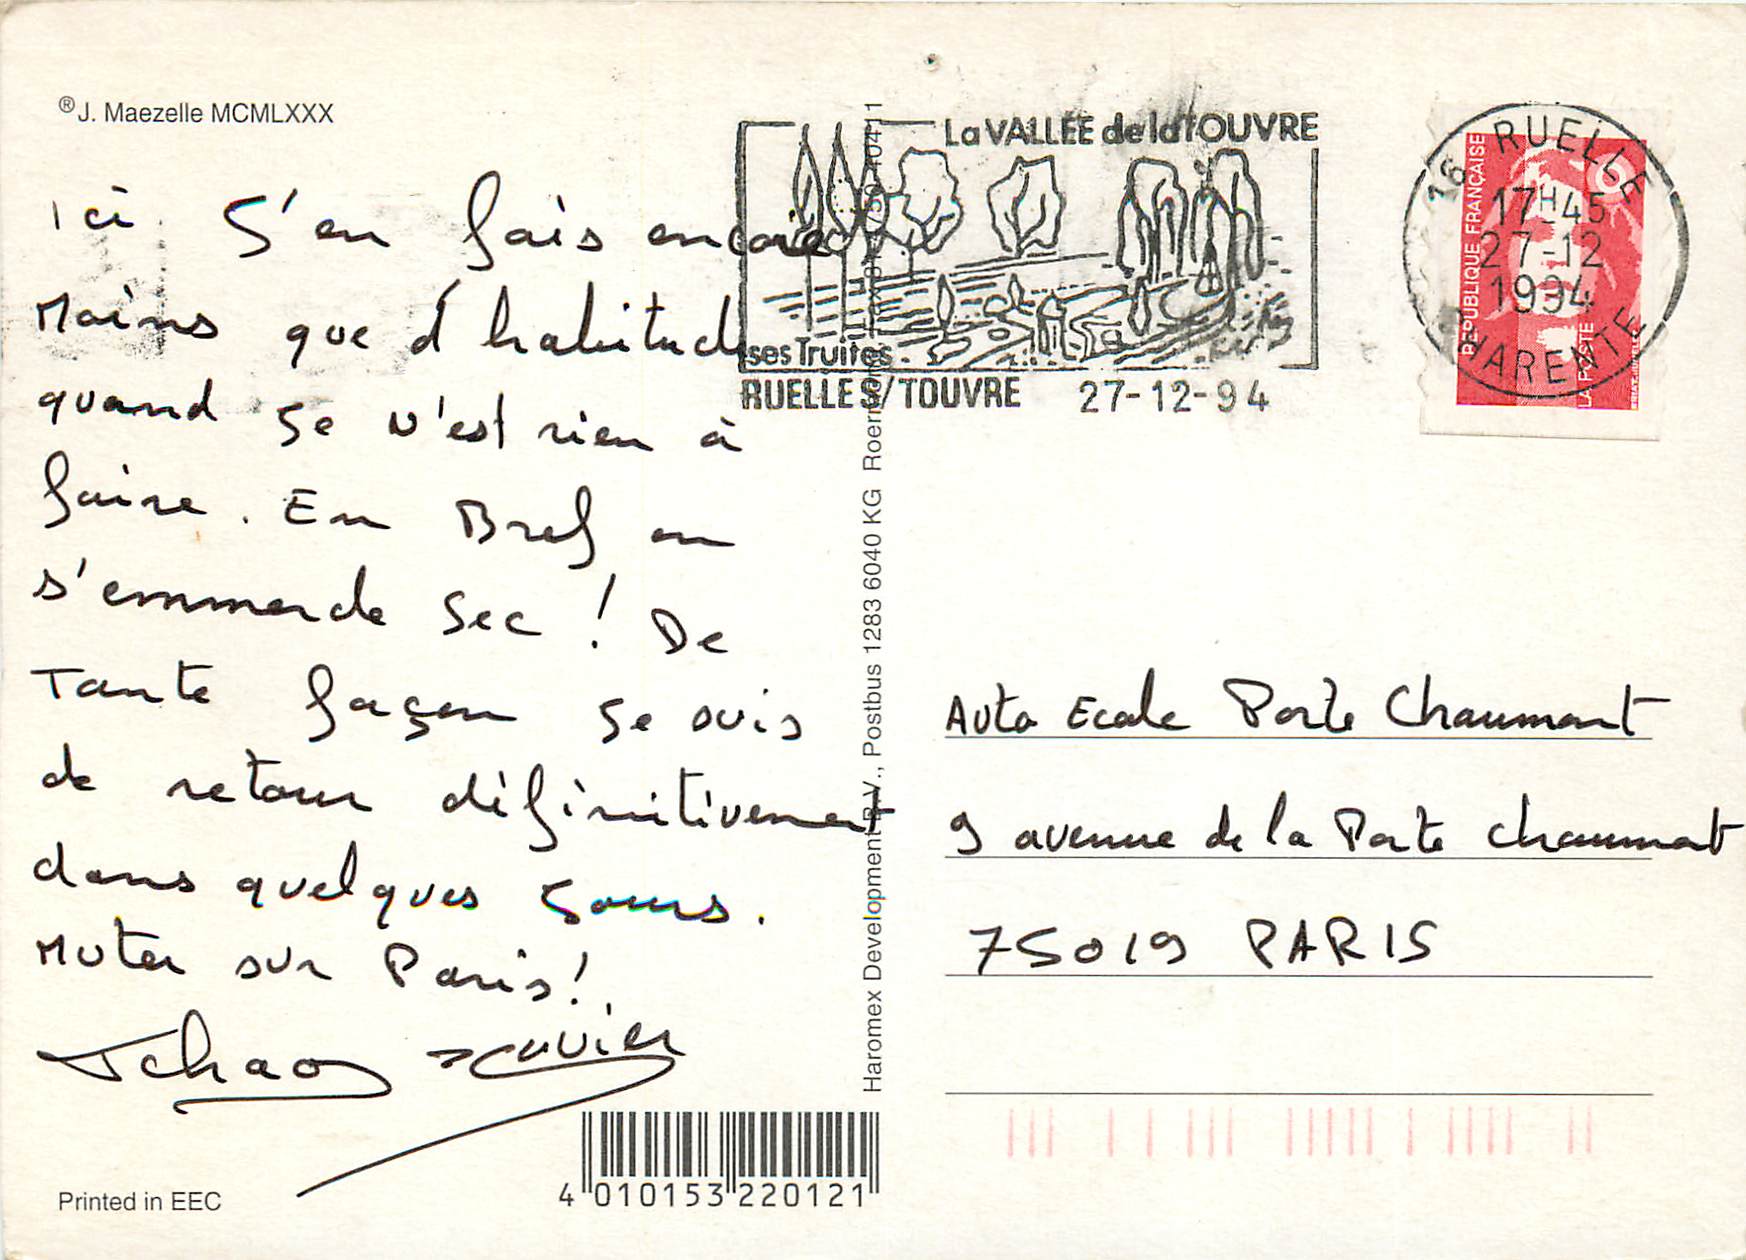 ® J. Maezelle MCMLXXX
ici J'en fais encore
Moins que d'habitude
quand je n'est rien à
faire. En Bref on
s'emmerde sec ! De
Toute façon je suis
de retour définitivement
dans quelques jours.
Muter sur Paris !
Tchao Xavier
Printed in EEC
4 010153 220121
Haromex Development B.V., Postbus 1283 6040 KG Roermond
La VALLÉE de la TOUVRE
ses Truites
RUELLE S/TOUVRE 27-12-94
16 RUELLE
17H45
27-12
1994
CHARENTE
RÉPUBLIQUE FRANÇAISE
LA POSTE
Auto Ecole Porte Chaumont
9 avenue de la Porte Chaumont
75019 PARIS